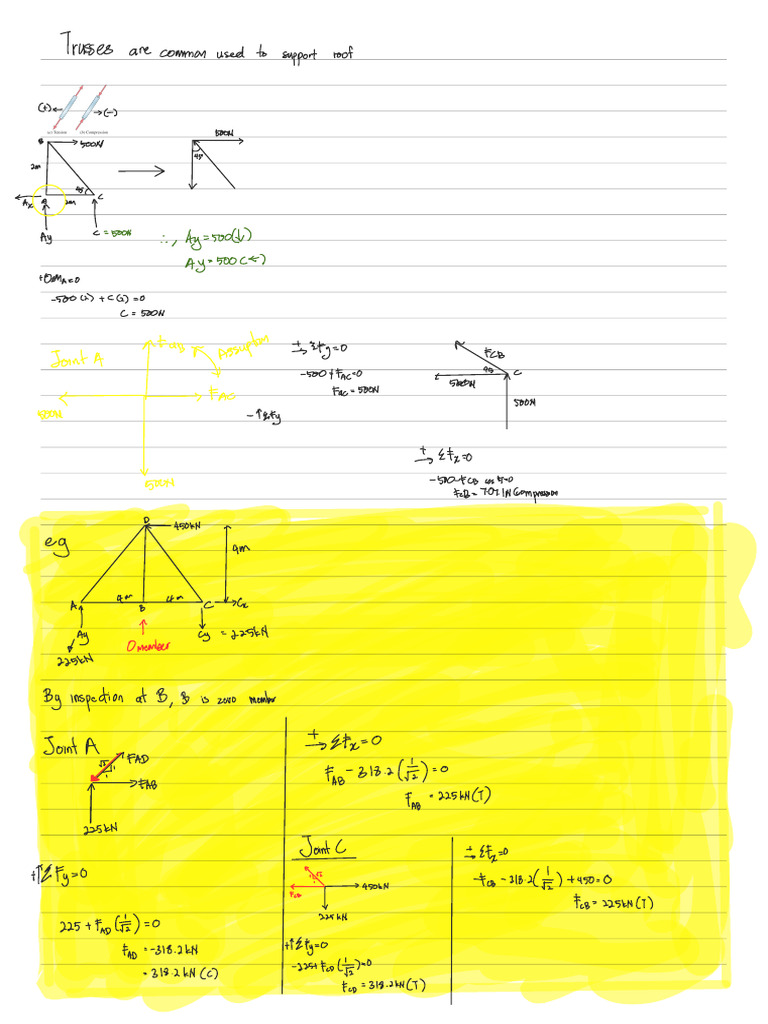 Trusses are common used to support roof
(+) (-)
(a) Tension (b) Compression
B 500N
2m
45
Ax A 2m C
Ay C = 500N
500N
45
∴, Ay=500(↓)
Ay=500(←)
+↺MA=0
-500(2)+C(2)=0
C = 500N
Joint A
FAB Assumption
FAC
500N
500N
+→ ΣFy=0
-500+FAC=0
FAC=500N
-↑ΣFy
FCB
45 C
500N
500N
+→ ΣFx=0
-500-FCB cos 45=0
FCB = 707.1N Compression
eg
D 450kN
4m
A 4m B 4m C Cx
Ay Cy = 225kN
225kN
0 member
By inspection at B, B is zero member
Joint A
FAD
√2 1
1
FAB
225kN
+→ ΣFx=0
FAB-318.2(1/√2)=0
FAB = 225kN(T)
+↑ΣFy=0
225+FAD(1/√2)=0
FAD = -318.2kN
= 318.2kN(C)
Joint C
450kN
FCB
225kN
+↑ΣFy=0
-225+FCD(1/√2)=0
FCD = 318.2kN(T)
+→ ΣFx=0
-FCB-318.2(1/√2)+450=0
FCB=225kN(T)